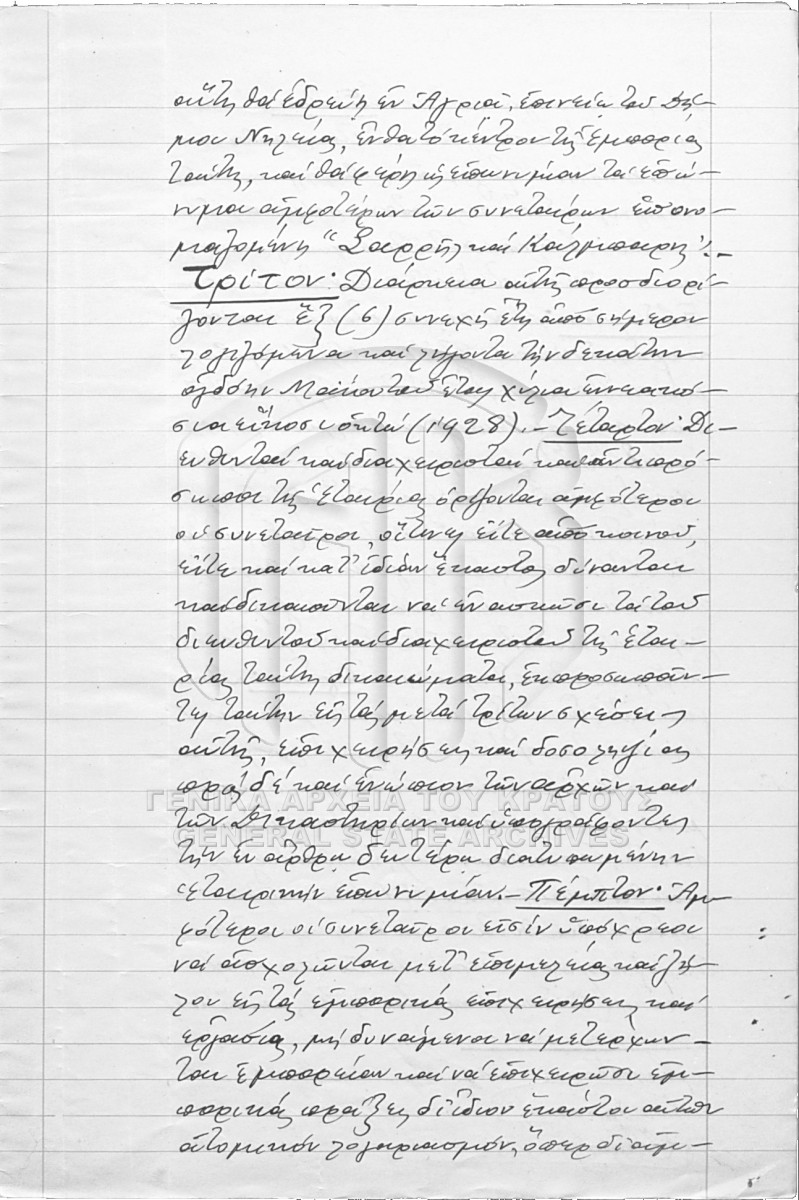 αὕτη θά ἑδρεύῃ ἐν Ἀγριᾷ, ἐπινείῳ τοῦ Δή-
μου Νηλείας, ἔνθα τό κέντρον τῆς ἐμπορίας
ταύτης, καί θά φέρῃ ὡς ἐπωνυμίαν τά ἐπώ-
νυμα ἀμφοτέρων τῶν συνεταίρων ἐπονο-
μαζομένη "Σαρρῆς καί
Τρίτον: Διάρκεια αὐτῆς προσδιορί-
ζονται ἕξ (6) συνεχῆ ἔτη ἀπό σήμερον
λογιζόμενα καί λήγοντα τήν δεκάτην
ὀγδόην Μαΐου τοῦ ἔτους χίλια ἐννεακό-
σια εἴκοσι ὀκτώ (1928).- Τέταρτον: Δι-
ευθυνταί καί διαχειρισταί καί ἀντιπρό-
σωποι τῆς ἑταιρίας ὁρίζονται ἀμφότεροι
οἱ συνεταῖροι, οἵτινες εἴτε ἀπό κοινοῦ,
εἴτε καί κατ' ἰδίαν ἕκαστος δύνανται
καί δικαιοῦνται νά ἐνασκῶσι τά τοῦ
διευθυντοῦ καί διαχειριστοῦ τῆς ἑται-
ρίας ταύτης δικαιώματα, ἐκπροσωποῦν-
τες ταύτην εἰς τάς μετά τρίτων σχέσεις
αὐτῆς, ἐπιχειρήσεις καί δοσοληψίας
πρός δέ καί ἐνώπιον τῶν ἀρχῶν καί
τῶν Δικαστηρίων καί ὑπογράφοντες
τήν ἐν ἄρθρῳ δευτέρῳ διατυπωμένην
ἑταιρικήν ἐπωνυμίαν.- Πέμπτον: Ἀμ-
φότεροι οἱ συνεταῖροι εἰσίν ὑπόχρεοι
νά ἀσχολῶνται μετ' ἐπιμελείας καί ζή-
λου εἰς τάς ἐμπορικάς ἐπιχειρήσεις καί
ἐργασίας, μή δυνάμενοι νά μετέρχων-
ται ἐμπορείαν καί νά ἐπιχειρῶσι ἐμ-
πορικάς πράξεις δι' ἴδιον ἑκάστου αὐτῶν
ἀτομικόν λογαριασμόν, ὅπερ
ΓΕΝΙΚΑ ΑΡΧΕΙΑ ΤΟΥ ΚΡΑΤΟΥΣ
GENERAL STATE ARCHIVES